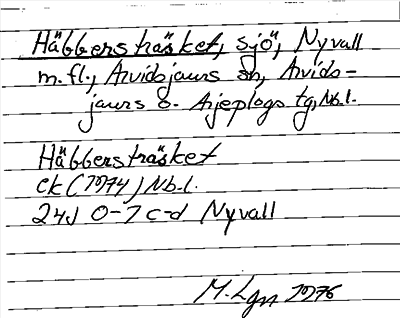 Häbbersträsket, sjö, Nyvall
m.fl., Arvidsjaurs sn, Arvids-
jaurs o. Arjeplogs tg, Nb.l.
Häbbersträsket
ek (1974) Nb.l.
24J 0-1 c-d Nyvall
M. Lgn 1976